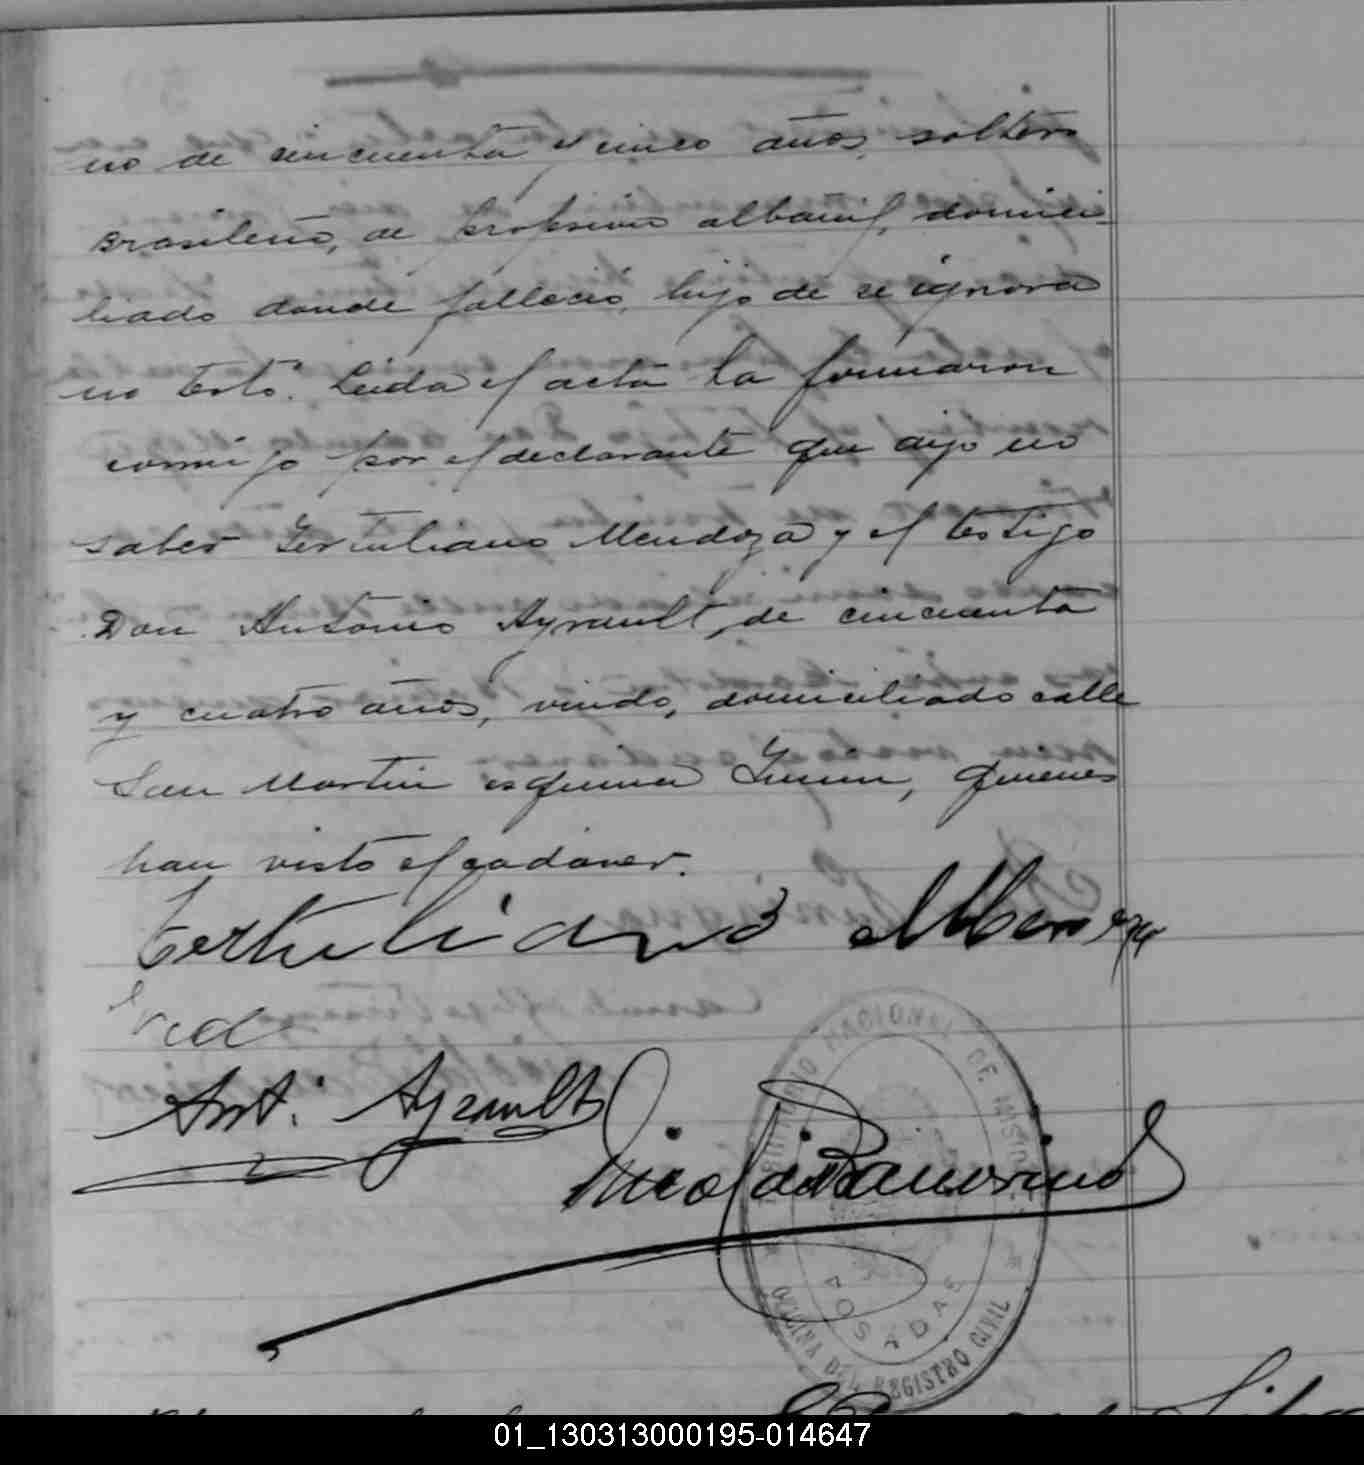 no de cincuenta y cinco años, soltero
Brasilero, de profesion albañil, domici
liado donde falleció, hijo de se ignora
no testó. Leida el acta la firmaron
conmigo por el declarante que dijo no
saber Tertuliano Mendoza y el testigo
Don Antonio Ayrault, de cincuenta
y cuatro años, viudo, domiciliado calle
San Martin esquina Junin, quienes
han visto el cadaver.
Tertuliano Mendoza
Ant. Ayrault
TERRITORIO NACIONAL DE MISIONES
POSADAS
OFICINA DEL REGISTRO CIVIL
01_130313000195-014647